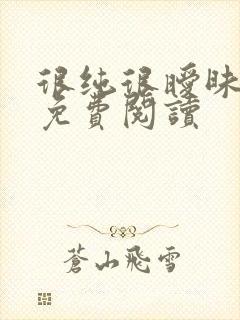 很纯很曖昧
免費閱讀
蒼山飛雪